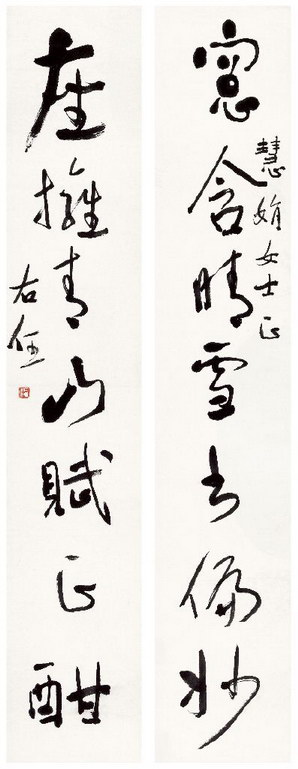 窻含晴雪書偏妙
慧娟女士正
座擁青山賦正酣
右任